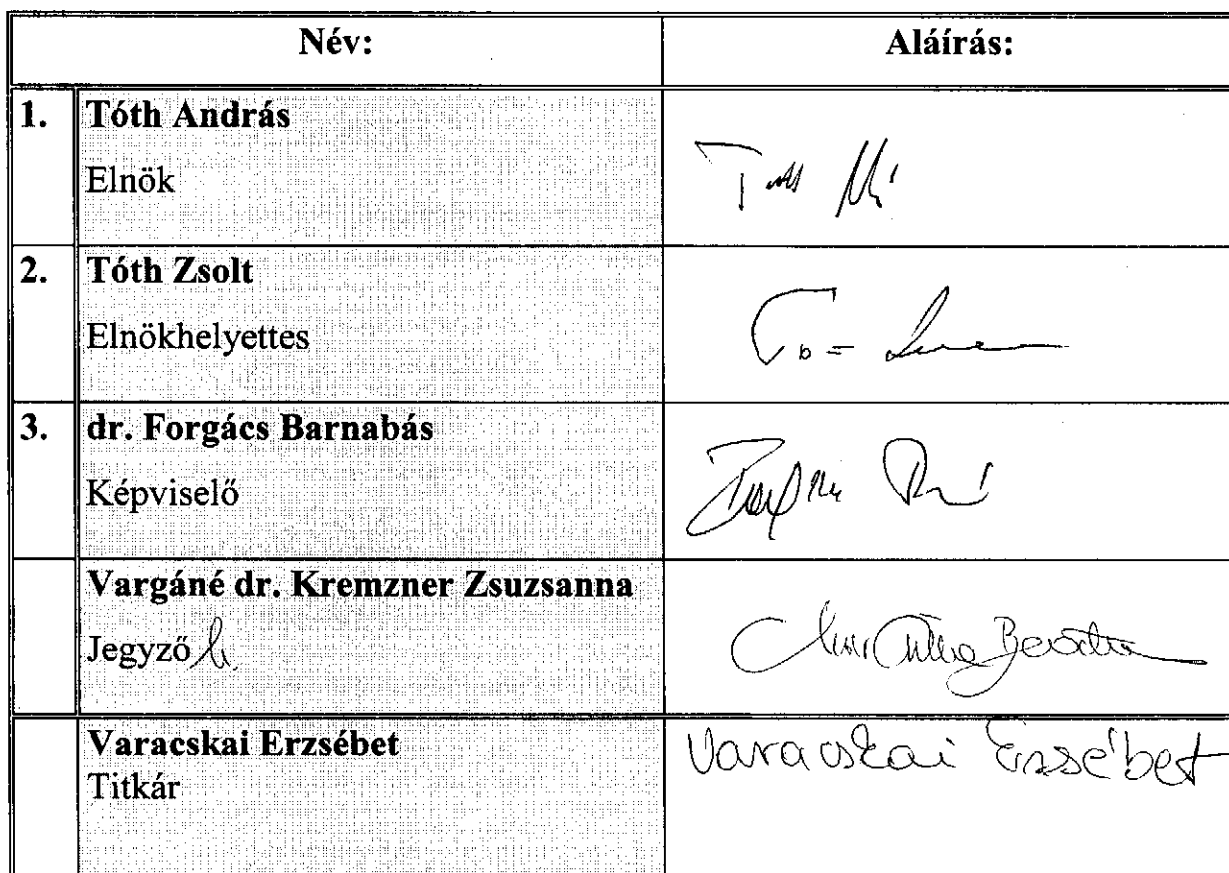 Név: Aláírás:
1. Tóth András
Elnök
2. Tóth Zsolt
Elnökhelyettes
3. dr. Forgács Barnabás
Képviselő
Vargáné dr. Kremzner Zsuzsanna
Jegyző h.
Varacskai Erzsébet Varacskai Erzsébet
Titkár